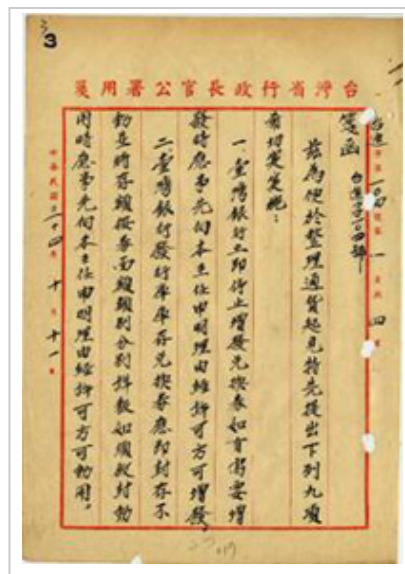 3
台灣省行政長官公署用箋
箋函
茲為便於整理通貨起見特先提出下列九項
希切實實現：
一、臺灣銀行立即停止增發兌換券如有需要增
發時應事先向本主任申明理由經許可方可增發。
二、臺灣銀行發行庫庫存兌換券應即封存不
動並將存額按券面額類別分別詳報如須啟封動
用時應事先向本主任申明理由經許可方可動用。
中華民國三十四年十月十一日